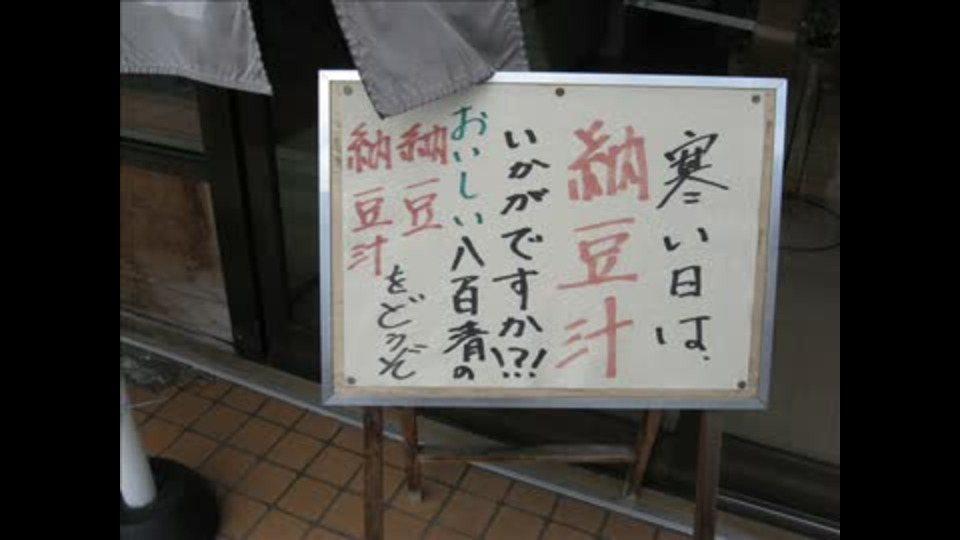 寒い日は、
納豆汁
いかがですか!?!
おいしい八百清の
納豆
納豆汁
をどうぞ